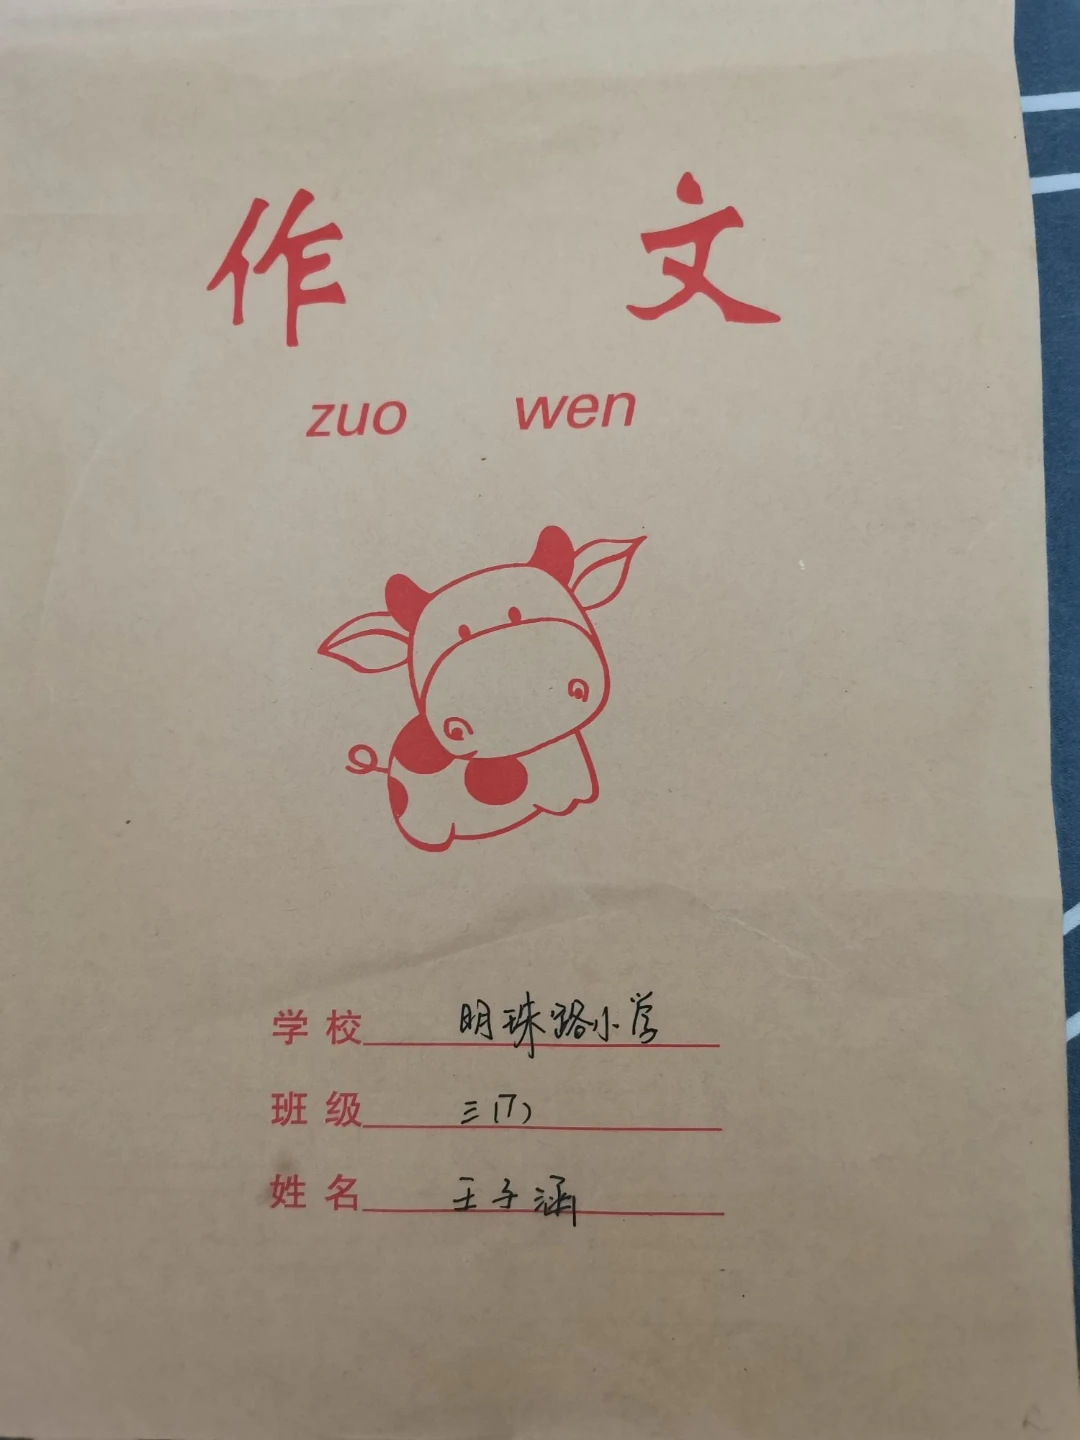 作 文
zuo wen
学校 明珠路小学
班级 三(7)
姓名 王子涵